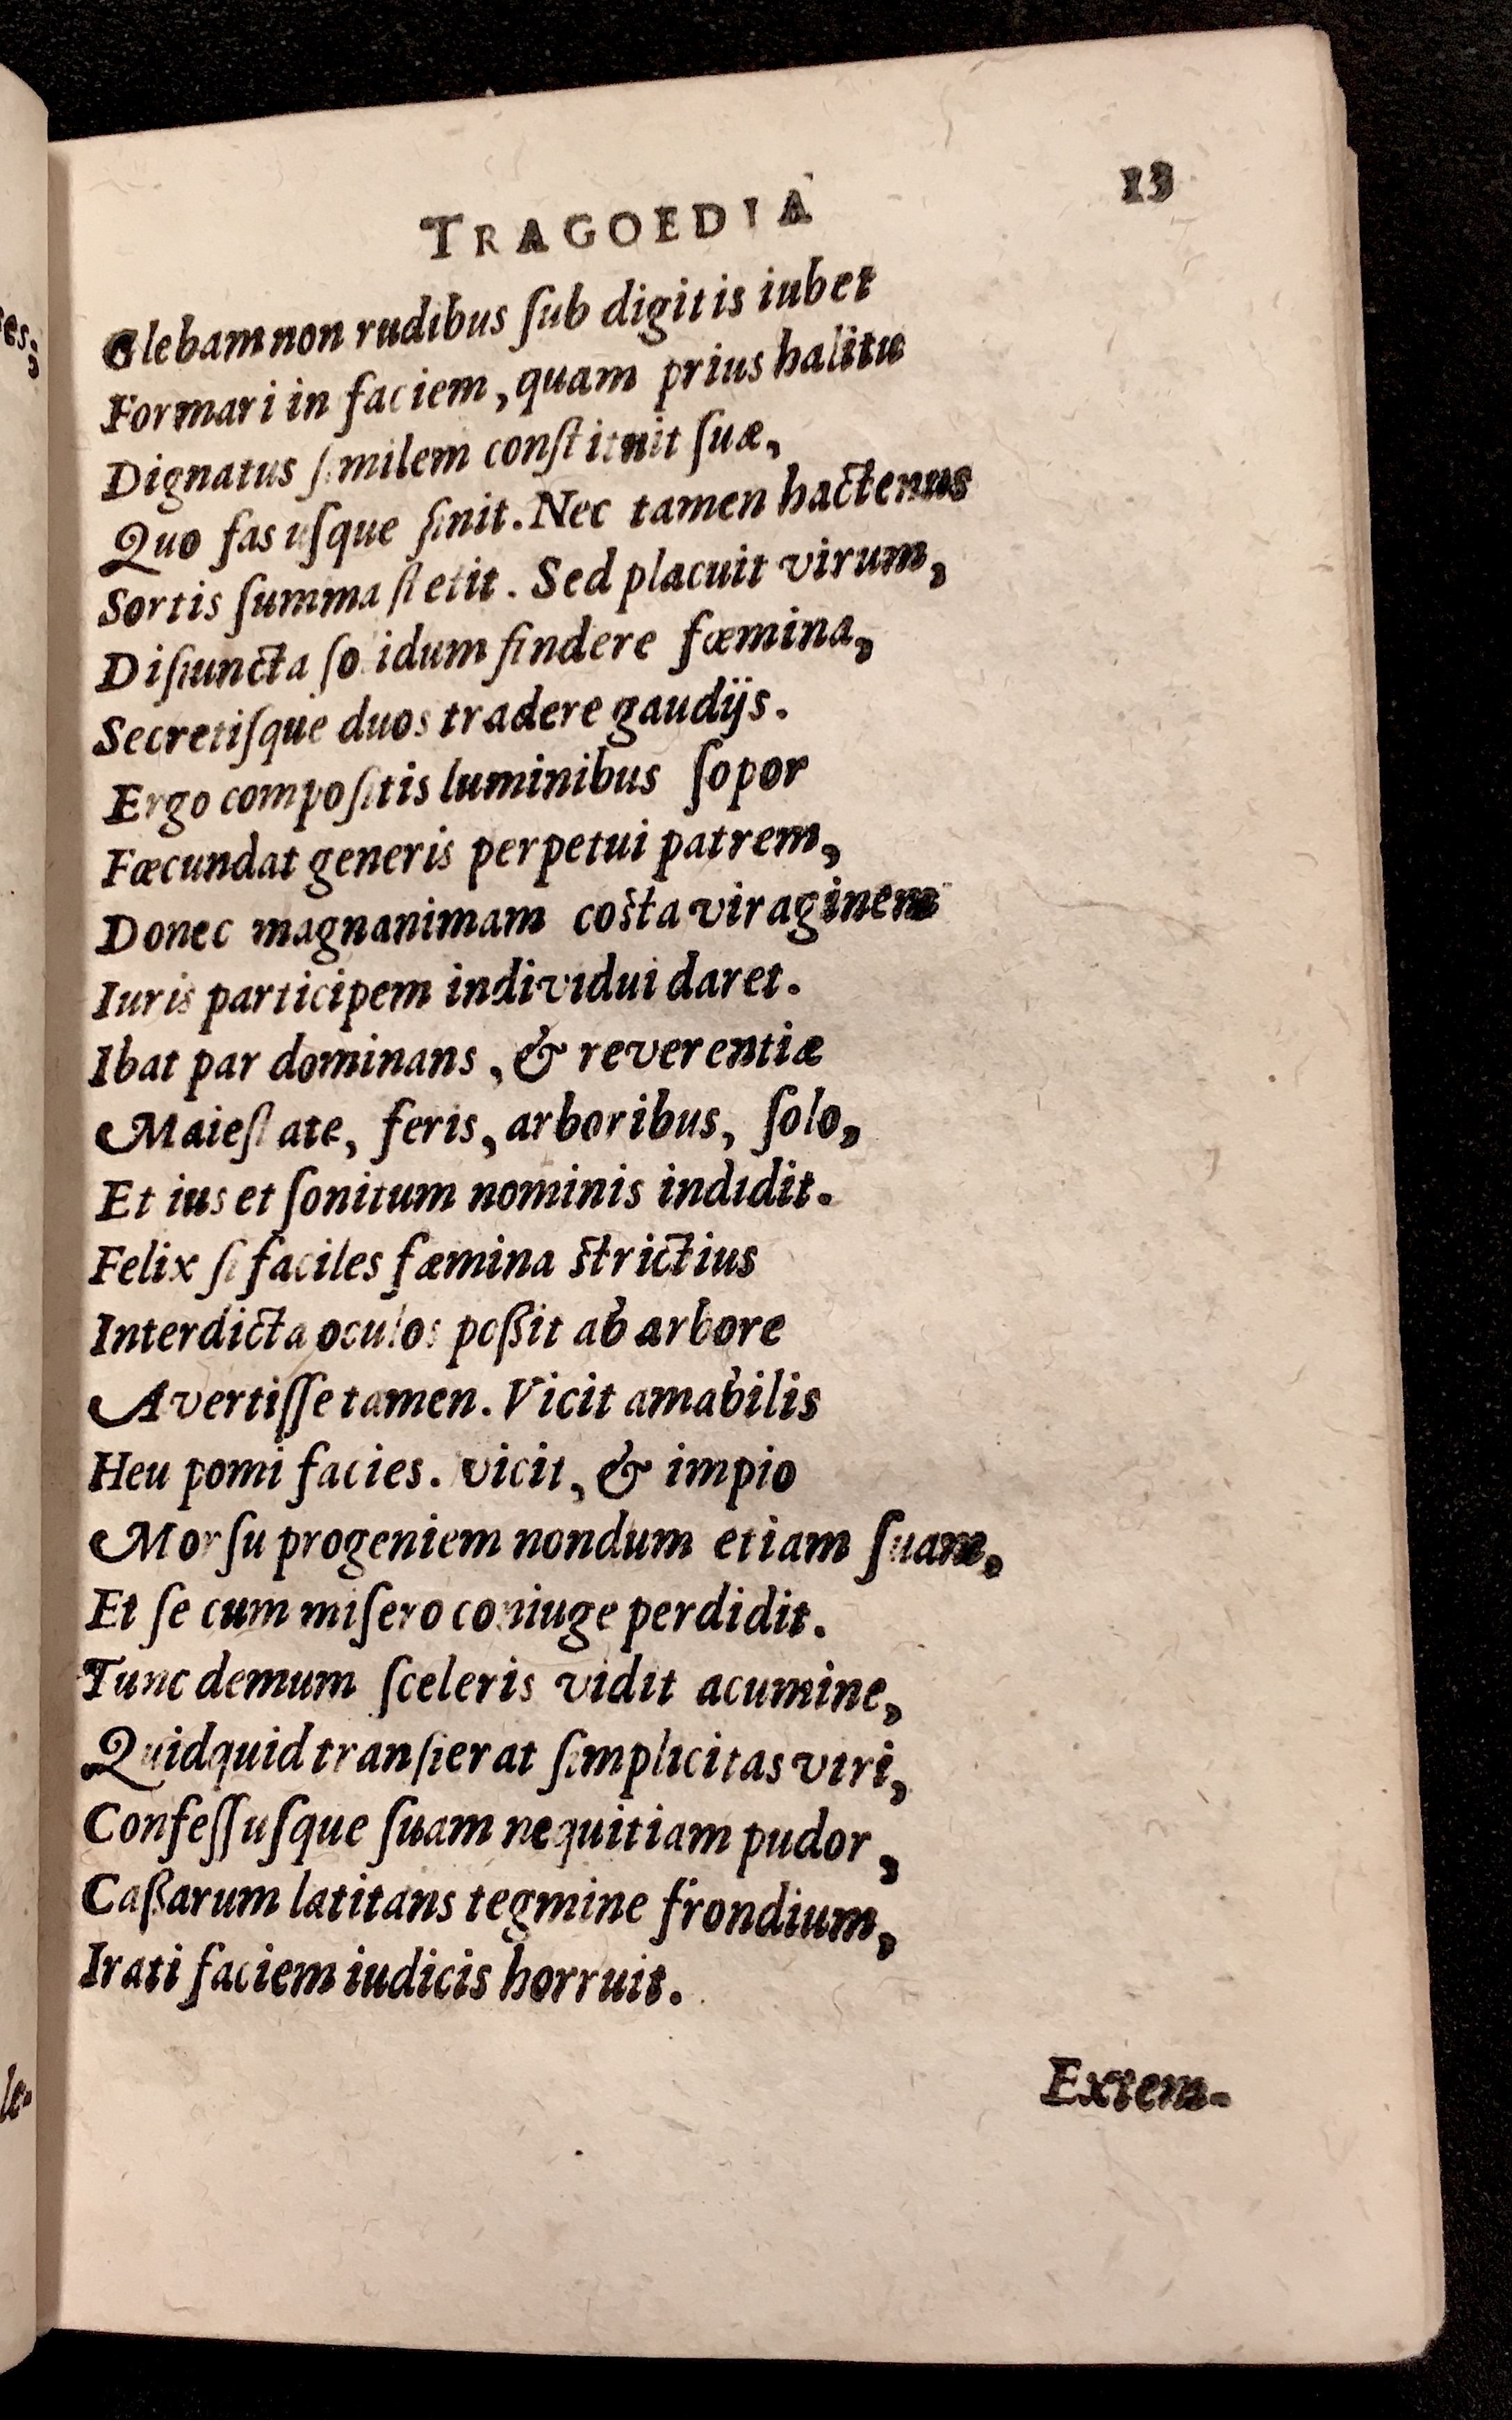 TRAGOEDIA 13
Glebam non rudibus ſub digitis iubet
Formari in faciem, quam prius halitu
Dignatus ſimilem conſtituit ſuæ,
Quo fas uſque ſinit. Nec tamen hactenus
Sortis ſumma ſtetit. Sed placuit virum,
Diſiuncta ſolidum findere fœmina,
Secretiſque duos tradere gaudijs.
Ergo compoſitis luminibus ſopor
Fœcundat generis perpetui patrem,
Donec magnanimam coſta viraginem
Iuris participem individui daret.
Ibat par dominans, & reverentiæ
Maieſtate, feris, arboribus, ſolo,
Et ius et ſonitum nominis indidit.
Felix ſi faciles fæmina ſtrictius
Interdicta oculos poßit ab arbore
Avertiſſe tamen. Vicit amabilis
Heu pomi facies. vicit, & impio
Morſu progeniem nondum etiam ſuam,
Et ſe cum miſero coniuge perdidit.
Tunc demum ſceleris vidit acumine,
Quidquid tranſierat ſimplicitas viri,
Confeſſuſque ſuam nequitiam pudor,
Caßarum latitans tegmine frondium,
Irati faciem iudicis horruit.
Extem-